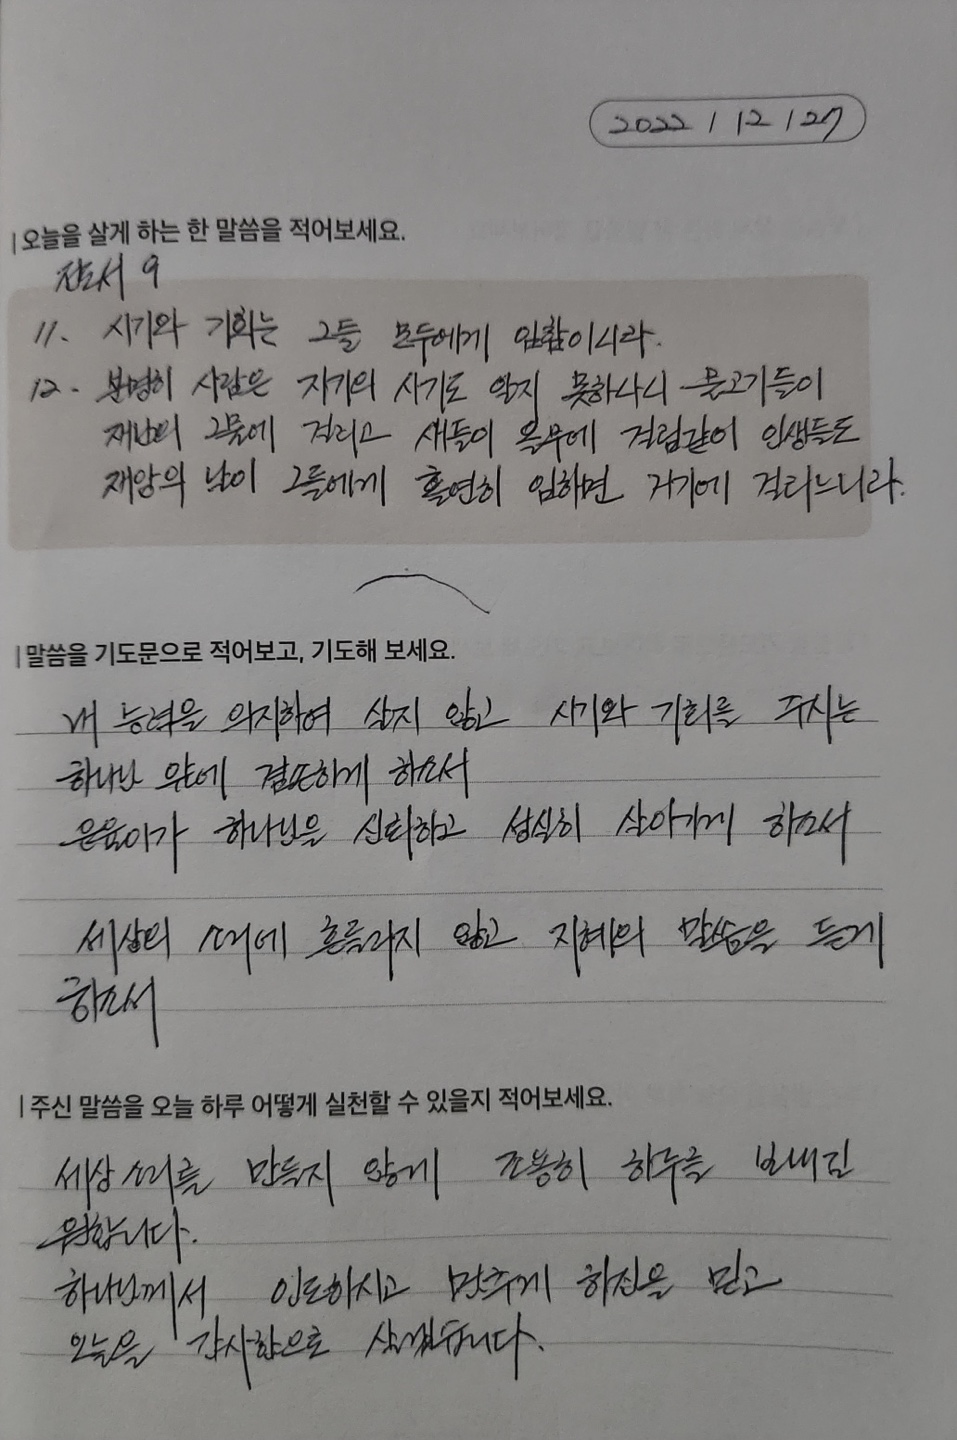 2022 / 12 / 27
오늘을 살게 하는 한 말씀을 적어보세요.
잠도서 9
11. 시기와 기회는 그들 모두에게 임함이니라.
12. 분명히 사람은 자기의 시기도 알지 못하나니 물고기들이
재난의 그물에 걸리고 새들이 올무에 걸림같이 인생들도
재앙의 날이 그들에게 홀연히 임하면 거기에 걸리느니라.
말씀을 기도문으로 적어보고, 기도해 보세요.
내 능력을 의지하여 살지 않고 시기와 기회를 주시는
하나님 앞에 겸손하게 하소서
은율이가 하나님을 신뢰하고 성실히 살아가게 하소서
세상의 소리에 흔들리지 않고 지혜의 말씀을 듣게
하소서
주신 말씀을 오늘 하루 어떻게 실천할 수 있을지 적어보세요.
세상 소리를 만들지 않게 조용히 하루를 보내길
원합니다.
하나님께서 인도하시고 멈추게 하심을 믿고
오늘을 감사함으로 살겠습니다.